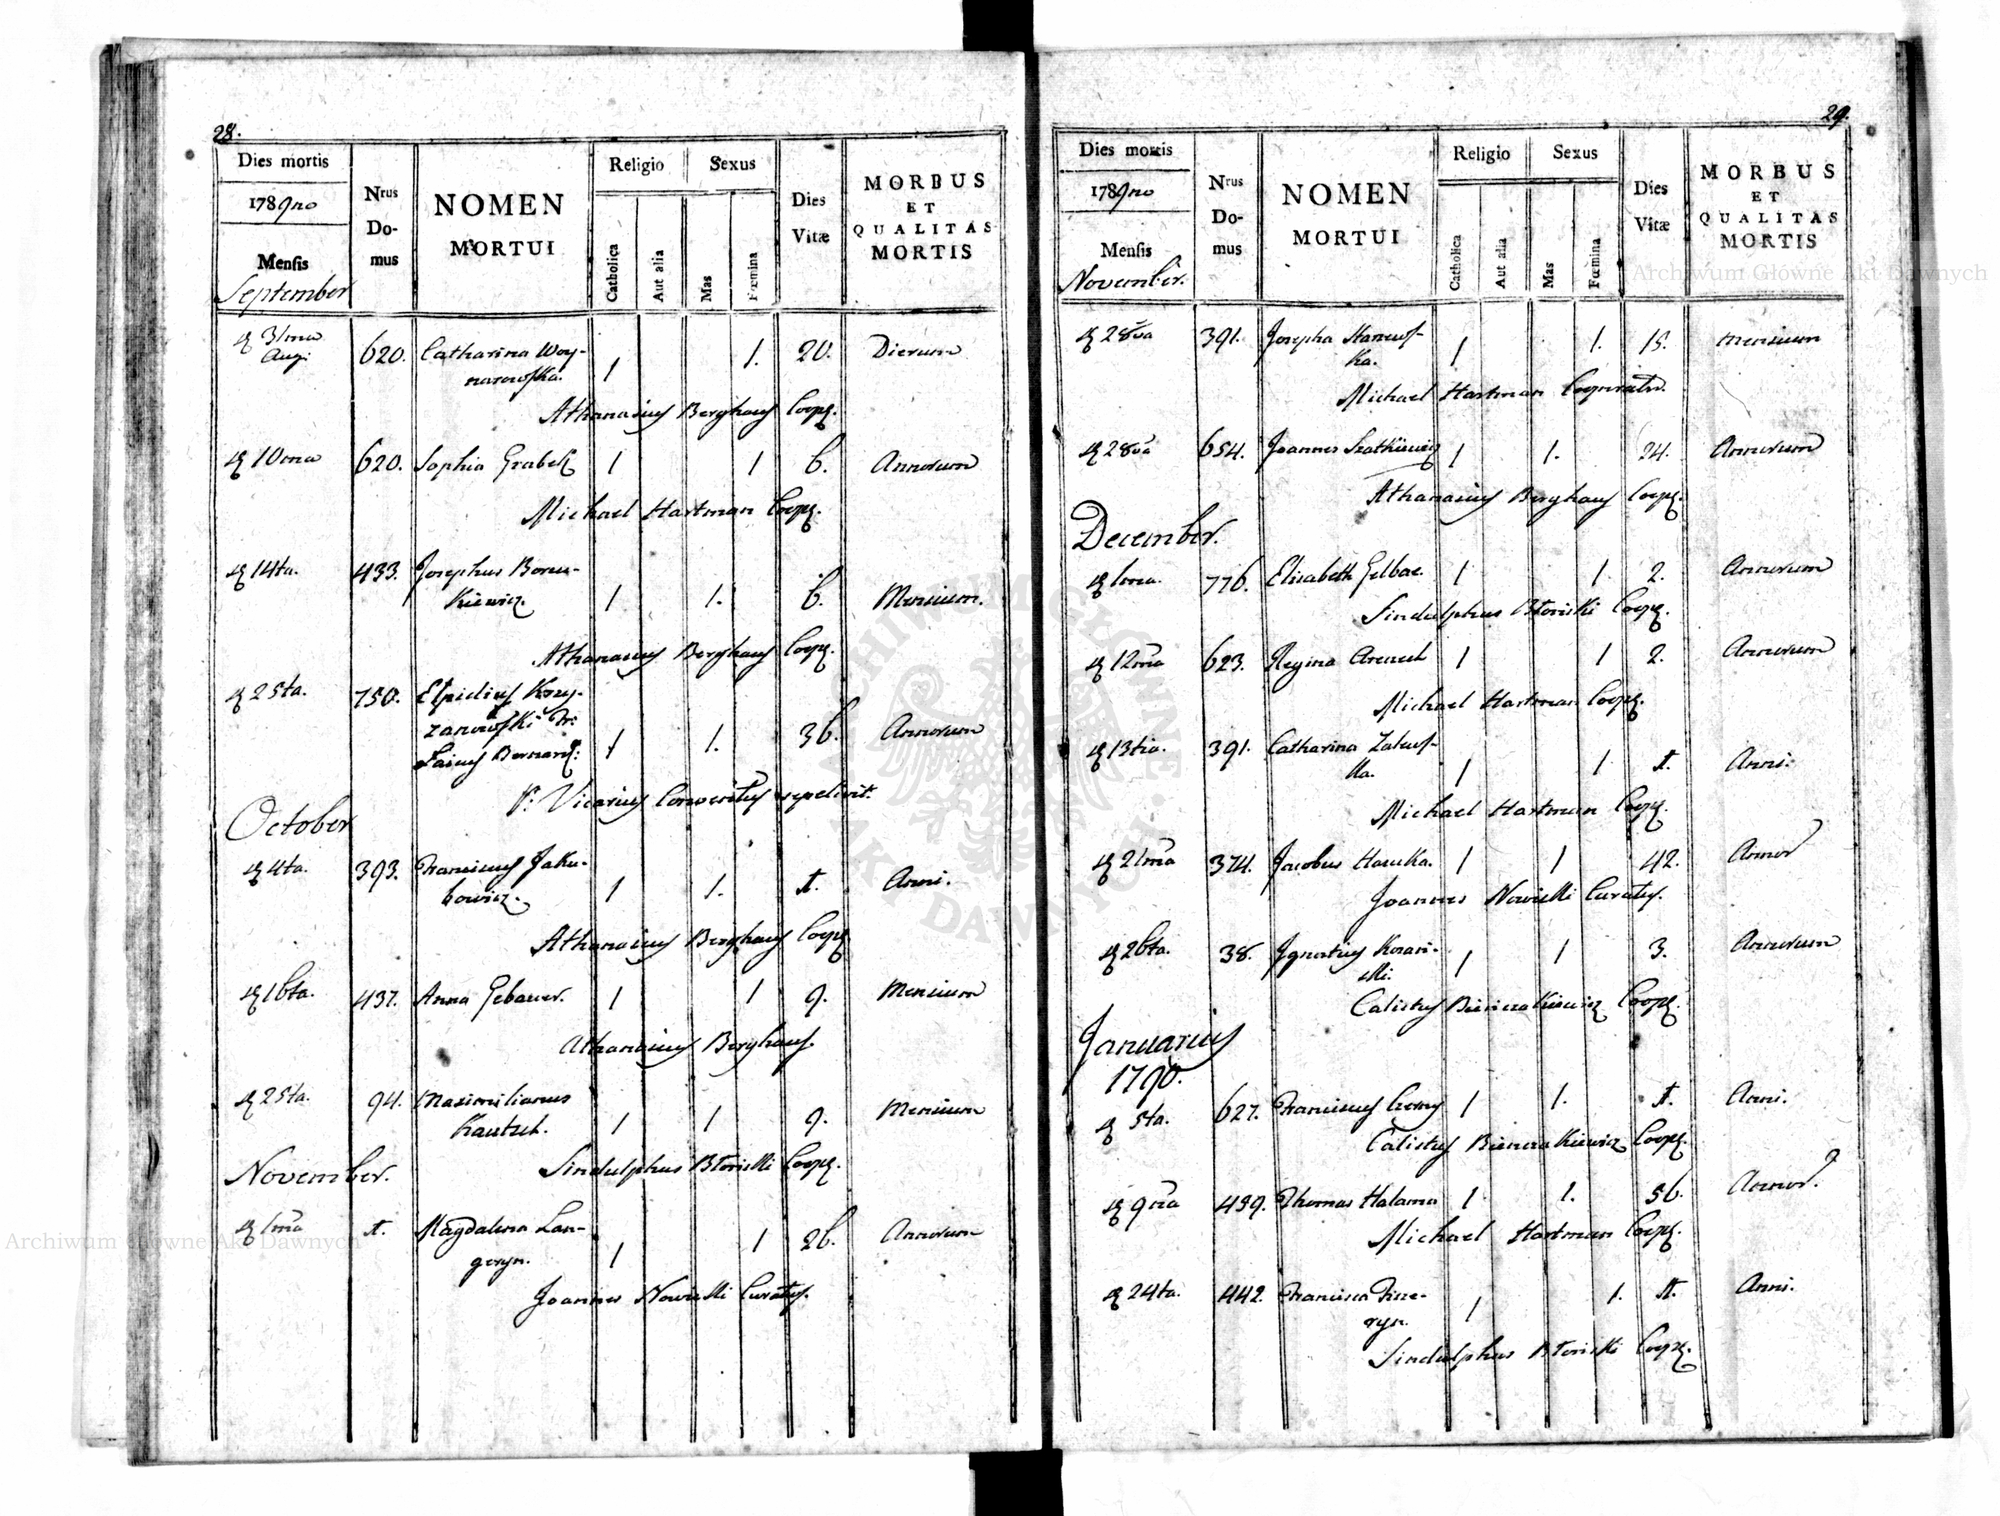 28.
Dies mortis
1789no
Mensis
September
Nrus Domus
NOMEN MORTUI
Religio
Catholica
Aut alia
Sexus
Mas
Fœmina
Dies Vitæ
MORBUS ET QUALITAS MORTIS
31ma Aug: 620. Catharina Woy-
narowska. 1 1. 20. Dierum
Athanasius Berghauß Coop.
10ma 620. Sophia Grabek 1 1 6. Annorum
Michael Hartman Coop.
14ta. 433. Josephus
Kiewicz. 1 1. 6. Mensium.
Athanasius Berghauß Coop.
25ta. 750. Elpidius
1 1. 36. Annorum
P: Vicarius Conventus sepelivit.
October
4ta. 393. Franciscus Jaku-
bowicz. 1 1. 1. Anni.
Athanasius Berghauß Coop
16ta. 437. Anna Gebauer. 1 1 9. Mensium
Athanasius Berghauß
25ta. 94. Maximilianus
Kautsch. 1 1 9. Mensium
Sindulphus Coop.
November.
1ma 1. Magdalena Lan-
geryn. 1 1 26. Annorum
Joannes Nowicki Curatus.
29.
Dies mortis
1789no
Mensis
November.
Nrus Domus
NOMEN MORTUI
Religio
Catholica
Aut alia
Sexus
Mas
Fœmina
Dies Vitæ
MORBUS ET QUALITAS MORTIS
28va 391. Josepha
ka. 1 1. 15. Mensium
Michael Hartman Cooperator.
28va 654. Joannes 1 1. 24. Annorum
Athanasius Berghauß Coop.
December.
1ma. 776. Elisabeth Gelbae. 1 1 2. Annorum
Sindulphus Coop.
12ma 623. Regina 1 1 2. Annorum
Michael Hartman Coop.
13tia. 391. Catharina Zaluf-
ka. 1 1 1. Anni.
Michael Hartman Coop.
21ma 374. Jacobus Hauka. 1 1 42. Annor
Joannes Nowicki Curatus.
26ta. 38. Ignatius
1 1 3. Annorum
Calistus Coop.
Januarius
1790.
5ta. 627. Franciscus 1 1. 1. Anni.
Calistus Coop.
9na 459. Thomas Halama 1 1. 56. Annor.
Michael Hartman Coop.
24ta. 442. Francisca
ryn. 1 1. 1. Anni.
Sindulphus Coop.
Archiwum Główne Akt Dawnych
Archiwum Główne Akt Dawnych
ARCHIWUM GŁÓWNE AKT DAWNYCH